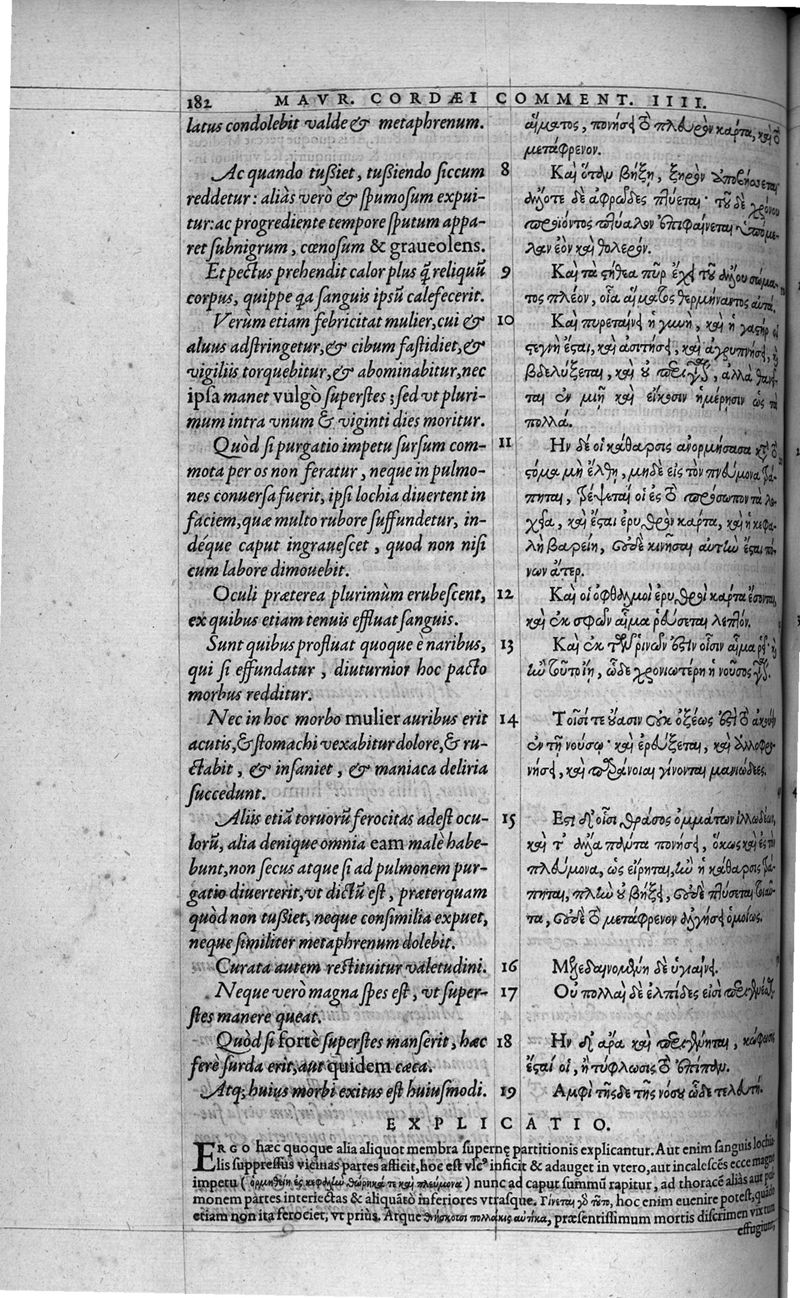 182 MAVR. CORDÆI COMMENT. IIII.
latus condolebit valde & metaphrenum.
Ac quando tußiet, tußiendo siccum
reddetur: aliàs verò & spumosum expui-
tur: ac progrediente tempore sputum appa-
ret subnigrum, cœnosum & graueolens.
Et pectus prehendit calor plus q̃ reliquũ
corpus, quippe q̃a sanguis ipsũ calefecerit.
Verùm etiam febricitat mulier, cui &
aluus adstringetur, & cibum fastidiet, &
vigiliis torquebitur, & abominabitur, nec
ipsa manet vulgò superstes; sed vt pluri-
mum intra vnum & viginti dies moritur.
Quòd si purgatio impetu sursum com-
mota per os non feratur, neque in pulmo-
nes conuersa fuerit, ipsi lochia diuertent in
faciem, quæ multo rubore suffundetur, in-
déque caput ingrauescet, quod non nisi
cum labore dimouebit.
Oculi præterea plurimùm erubescent,
ex quibus etiam tenuis effluat sanguis.
Sunt quibus profluat quoque è naribus,
qui si effundatur, diuturnior hoc pacto
morbus redditur.
Nec in hoc morbo mulier auribus erit
acutis, & stomachi vexabitur dolore, & ru-
ctabit, & insaniet, & maniaca deliria
succedunt.
Aliis etiã toruorũ ferocitas adest ocu-
lorũ, alia denique omnia eam malè habe-
bunt, non secus atque si ad pulmonem pur-
gatio diuerterit, vt dictũ est, præterquam
quòd non tußiet, neque consimilia expuet,
neque similiter metaphrenum dolebit.
Curata autem restituitur valetudini.
Neque verò magna spes est, vt super-
stes manere queat.
Quòd si fortè superstes manserit, hæc
ferè surda erit, aut quidem cæca.
Atq; huius morbi exitus est huiusmodi.
8
9
10
11
12
13
14
15
16
17
18
19
αἵματος, πονήσει τὸ πλευρὸν κάρτα, καὶ τὸ
μετάφρενον.
Καὶ ὅταν βήξῃ, ξηρὸν
δὲ ἀφρῶδες πτύεται· τοῦ δὲ χρόνου
προϊόντος πτύαλον ἐπιφαίνεται ὑπομέ-
λαν ἐὸν καὶ θολερόν.
Καὶ τὰ στήθεα πῦρ ἔχει τοῦ ἄλλου σώμα-
τος πλέον, οἷα αἵματος θερμήναντος αὐτά.
Καὶ πυρεταίνει ἡ γυνὴ, καὶ ἡ γαστὴρ οἱ
στεγνὴ ἔσται, καὶ ἀσιτήσει, καὶ ἀγρυπνήσει, καὶ
βδελύξεται, καὶ οὐ ἀλλὰ θνήσκε-
ται ἐν μιῇ καὶ εἴκοσιν ἡμέρῃσιν ὡς τὰ
πολλά.
Ην δέ οἱ κάθαρσις ἀνορμήσασα κατὰ τὸ
στόμα μὴ ἔλθῃ, μηδὲ εἰς τὸν πνεύμονα τρά-
πηται, τρέψεταί οἱ ἐς τὸ πρόσωπον τὰ λο-
χεῖα, καὶ ἔσται ἐρυθρὸν κάρτα, καὶ ἡ κεφα-
λὴ βαρείη, οὐδὲ κινῆσαι αὐτὴν ἔσται πό-
νων ἄτερ.
Καὶ οἱ ὀφθαλμοὶ ἐρυθροὶ κάρτα ἔσονται,
καὶ ἐκ σφῶν αἷμα ῥεύσεται λεπτόν.
Καὶ ἐκ τῶν ῥινῶν ἐστὶν οἷσιν αἷμα ῥεῖ· καὶ
ἢν τοῦτο ᾖ, ὧδε χρονιωτέρη ἡ νοῦσος
Τοῖσί τε οὔασιν οὐκ ὀξέως ἐστὶ τὸ ἀκούειν
ἐν τῇ νούσῳ· καὶ ἐρεύξεται, καὶ ἀλλοφρο-
νήσει, καὶ παράνοιαι γίνονται μανιώδεες.
Εστι δ' οἷσι θράσος ὀμμάτων ἰλλωδέων,
καὶ τ' ἄλλα πάντα πονήσει, ὅκως καὶ ἐς τὸν
πλεύμονα, ὡς εἴρηται, ἢν ἡ κάθαρσις τρά-
πηται, πλὴν οὐ βήξει, οὐδὲ πτύσεται τοιαῦ-
τα, οὐδὲ τὸ μετάφρενον ἀλγήσει ὁμοίως.
Μελεδαινομένη δὲ ὑγιαίνει.
Οὐ πολλαὶ δὲ ἐλπίδες εἰσὶ
Ην δ' ἄρα καὶ κώφωσις
ἔσται οἱ, ἢ τύφλωσις τὸ ἐπίπαν.
Αμφὶ τῆσδε τῆς νόσου ὧδε τελευτή.
EXPLICATIO.
ERGO hæc quoque alia aliquot membra supernę partitionis explicantur. Aut enim sanguis lochiis
suppressus vicinas partes afficit, hoc est inficit & adauget in vtero, aut incalescēs ecce magno
impetu (ὁρμηθείη ἐς κεφαλὴν θώρηκά τε καὶ πλεύμονα) nunc ad caput summū rapitur, ad thoracē aliàs aut pul-
monem partes interiectas & aliquāto inferiores vtrasque. hoc enim euenire potest, quādo
etiam non ita ferociet, vt priùs. Atque θνήσκουσι πολλάκις αὐτίκα, præsentissimum mortis discrimen vix tum
effugiunt,